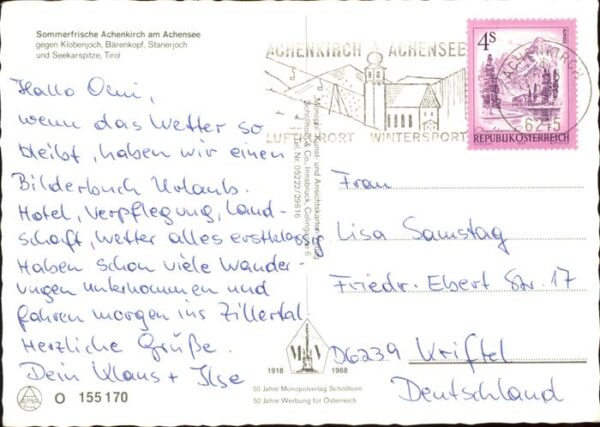 Sommerfrische Achenkirch am Achensee
gegen Klobenjoch, Bärenkopf, Stanerjoch
und Seekarspitze, Tirol
Hallo Omi,
wenn das Wetter so
bleibt, haben wir einen
Bilderbuch Urlaub.
Hotel, Verpflegung, Land-
schaft, Wetter alles erstklassig
Haben schon viele Wander-
ungen unternommen und
fahren morgen ins Zillertal.
Herzliche Grüße.
Dein Klaus + Ilse
O 155170
ACHENKIRCH ACHENSEE
LUFTKURORT WINTERSPORT
4 S
REPUBLIK ÖSTERREICH
ACHENKIRCH
6215
Monopol Kunst- und Ansichtskarten-Verlag
Schöllhorn & Co. Innsbruck, Colingasse 6
Tel. Nr. 05222/29816
Frau
Lisa Samstag
Friedr.-Ebert Str. 17
D6239 Kriftel
Deutschland
1918 1968
50 Jahre Monopolverlag Schöllhorn
50 Jahre Werbung für Österreich